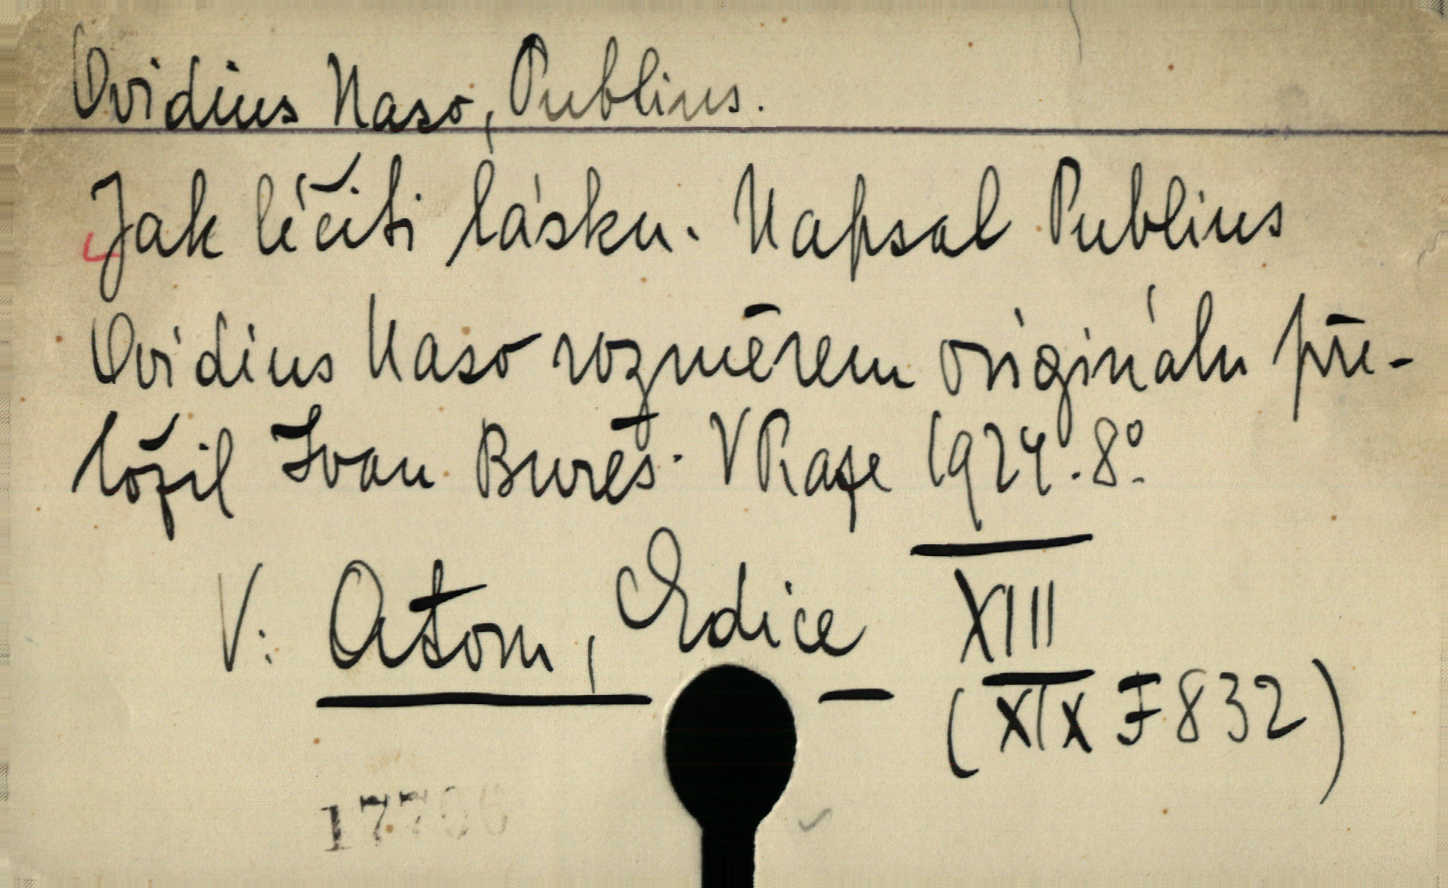 Ovidius Naso, Publius.
Jak léčiti lásku. Napsal Publius
Ovidius Naso rozměrem originálu pře-
ložil Ivan Bureš. V Praze 1924. 8°.
V: Atom, Edice XIII
(XIX F 832)
17706